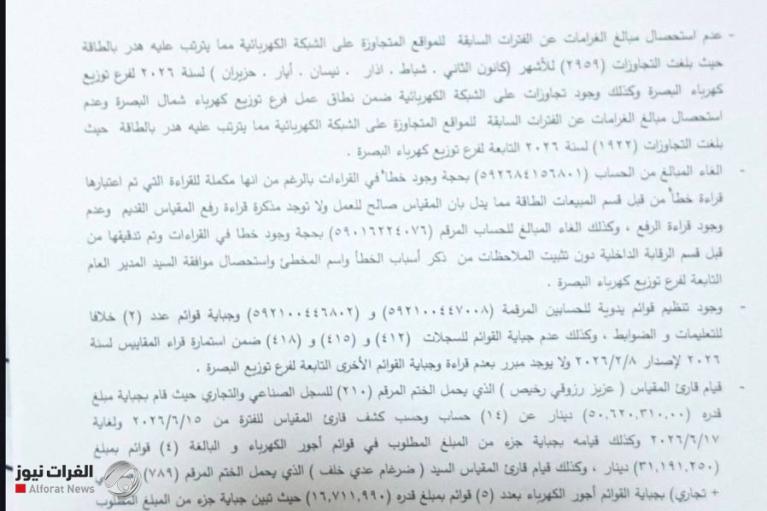 - عدم استحصال مبالغ الغرامات عن الفترات السابقة للمواقع المتجاوزة على الشبكة الكهربائية مما يترتب عليه هدر بالطاقة
حيث بلغت التجاوزات (٢٩٥٩) للأشهر (كانون الثاني . شباط . اذار . نيسان . أيار . حزيران ) لسنة ٢٠٢٦ لفرع توزيع
كهرباء البصرة وكذلك وجود تجاوزات على الشبكة الكهربائية ضمن نطاق عمل فرع توزيع كهرباء شمال البصرة وعدم
استحصال مبالغ الغرامات عن الفترات السابقة للمواقع المتجاوزة على الشبكة الكهربائية مما يترتب عليه هدر بالطاقة حيث
بلغت التجاوزات (١٩٢٢) لسنة ٢٠٢٦ التابعة لفرع توزيع كهرباء البصرة .
- الغاء المبالغ من الحساب (٥٩٢٦٨٤١٥٦٨٠١) بحجة وجود خطأ في القراءات بالرغم من انها مكملة للقراءة التي تم اعتبارها
قراءة خطأ من قبل قسم المبيعات الطاقة مما يدل بان المقياس صالح للعمل ولا توجد مذكرة قراءة رفع المقياس القديم وعدم
وجود قراءة الرفع ، وكذلك الغاء المبالغ للحساب المرقم (٥٩٠١٦٢٢٤٠٧٦) بحجة وجود خطا في القراءات وتم تدقيقها من
قبل قسم الرقابة الداخلية دون تثبيت الملاحظات من ذكر أسباب الخطأ واسم المخطئ واستحصال موافقة السيد المدير العام
التابعة لفرع توزيع كهرباء البصرة .
- وجود تنظيم قوائم يدوية للحسابين المرقمة (٥٩٢١٠٠٤٤٧٠٠٨) و (٥٩٢١٠٠٤٤٦٨٠٢) وجباية قوائم عدد (٢) خلافا
للتعليمات و الضوابط ، وكذلك عدم جباية القوائم للسجلات (٤١٢) و (٤١٥) و (٤١٨) ضمن استمارة قراء المقاييس لسنة
٢٠٢٦ لإصدار ٢٠٢٦/٢/٨ ولا يوجد مبرر بعدم قراءة وجباية القوائم الأخرى التابعة لفرع توزيع البصرة .
- قيام قارئ المقياس ( عزيز رزوقي رخيص ) الذي يحمل الختم المرقم (٢١٠) للسجل الصناعي والتجاري حيث قام بجباية مبلغ
قدره (٥٠,٦٢٠,٣١٠,٠٠) دينار عن (١٤) حساب وحسب كشف قارئ المقياس للفترة من ٢٠٢٦/٦/١٥ ولغاية
٢٠٢٦/٦/١٧ وكذلك قيامه بجباية جزء من المبلغ المطلوب في قوائم أجور الكهرباء و البالغة (٤) قوائم بمبلغ
(٣١,١٩١,٢٥٠) دينار ، وكذلك قيام قارئ المقياس السيد ( ضرغام عدي خلف ) الذي يحمل الختم المرقم (٧٨٩)
+ تجاري) بجباية القوائم أجور الكهرباء بعدد (٥) قوائم بمبلغ قدره (١٦,٧١١,٩٩٠) حيث تبين جباية جزء من المبلغ المطلوب
الفرات نيوز
Alforat News